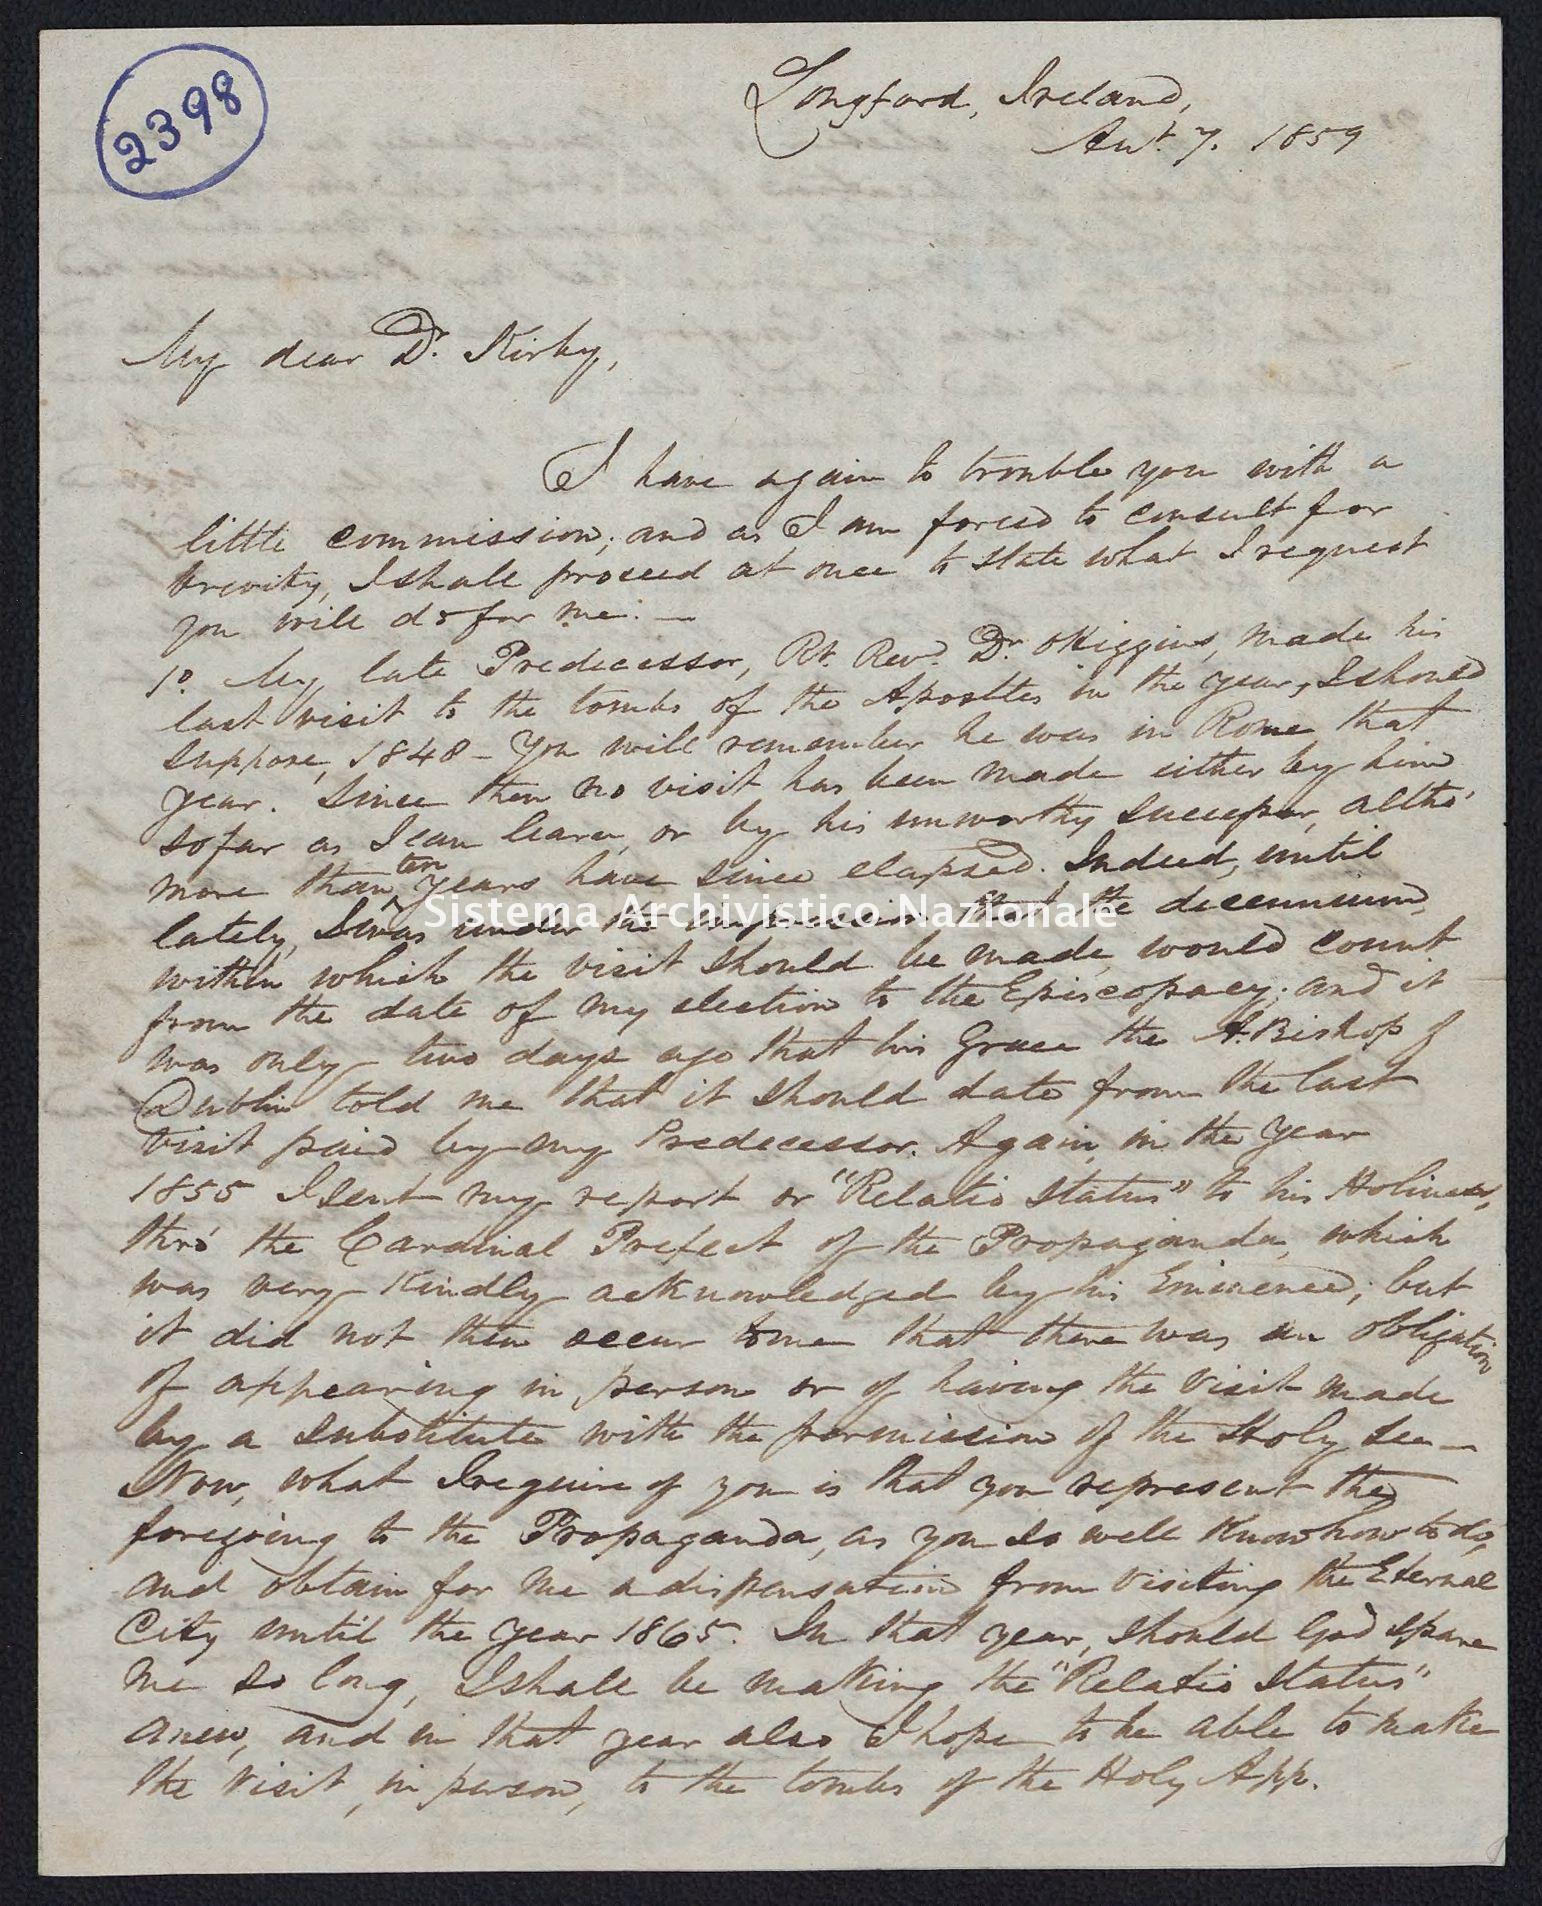 2398
Longford, Ireland,
Aut. 7. 1859
My dear Dr. Kirby,
I have again to trouble you with a
little commission; and as I am forced to consult for
brevity, I shall proceed at once to state what I request
you will do for me. —
1o. My late Predecessor, Rt. Revd. Dr. O'Higgins, made his
last visit to the tombs of the Apostles in the year, I should
suppose, 1848 - You will remember he was in Rome that
year. Since then no visit has been made either by him
so far as I can learn, or by his unworthy successor, altho'
more than ten years have since elapsed. Indeed, until
lately, I was under the impression that the decennium,
within which the visit should be made, would count
from the date of my election to the Episcopacy; and it
was only two days ago that his Grace the A.Bishop of
Dublin told me that it should date from the last
visit paid by my Predecessor. Again, in the year
1855 I sent my report or "Relatio Status" to his Holiness,
thro' the Cardinal Prefect of the Propaganda, which
was very kindly acknowledged by his Eminence; but
it did not then occur to me that there was an obligation
of appearing in person or of having the visit made
by a substitute with the permission of the Holy See —
Now, what I require of you is that you represent the
foregoing to the Propaganda, as you so well know how to do,
and obtain for me a dispensation from visiting the Eternal
City until the year 1865. In that year, should God spare
me so long, I shall be making the "Relatio Status"
anew, and in that year also I hope to be able to make
the visit, in person, to the tombs of the Holy App.
Sistema Archivistico Nazionale